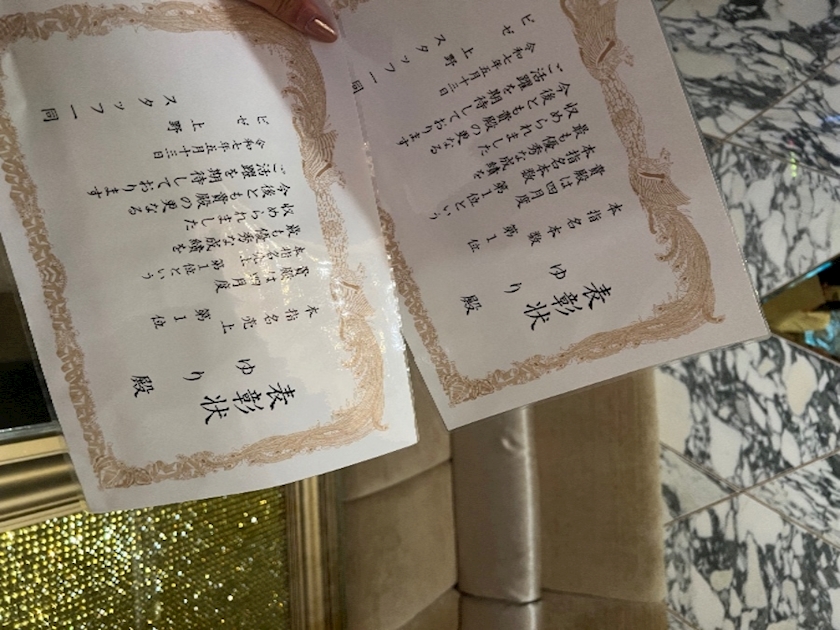 表彰状
ゆり 殿
本指名本数 第1位
貴殿は四月度
本指名本数第1位という
最も優秀な成績を
収められました
今後とも貴殿の更なる
ご活躍を期待しております
令和七年五月十三日
ビゼ 上野
スタッフ一同
表彰状
ゆり 殿
本指名売上 第1位
貴殿は四月度
本指名売上第1位という
最も優秀な成績を
収められました
今後とも貴殿の更なる
ご活躍を期待しております
令和七年五月十三日
ビゼ 上野
スタッフ一同